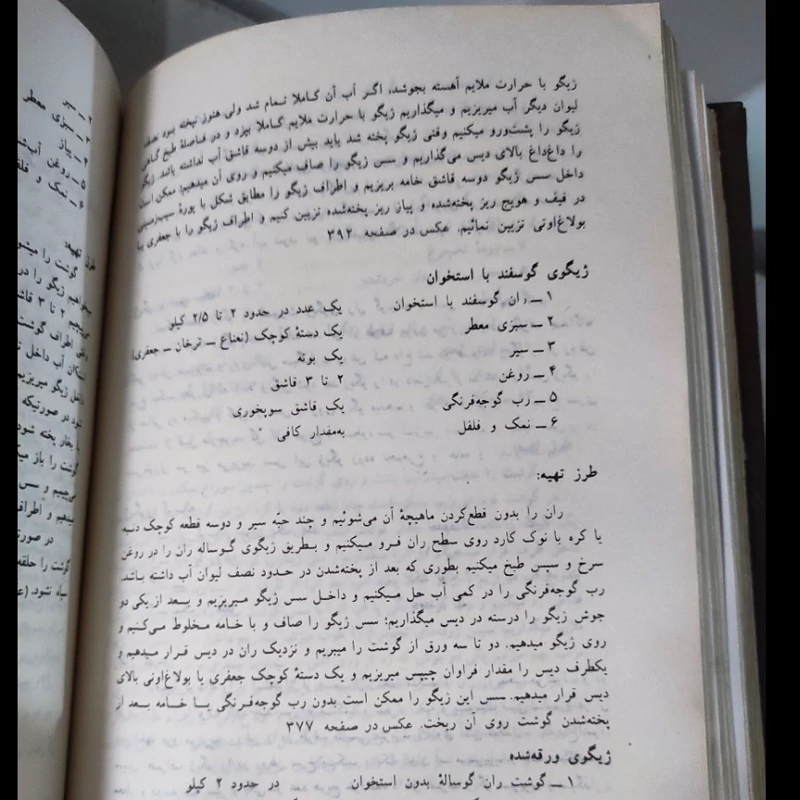 ژیگو با حرارت ملایم آهسته بجوشد، اگر آب آن کاملا تمام شد ولی هنوز نپخته بود نصف
لیوان دیگر آب میریزیم و میگذاریم ژیگو با حرارت ملایم کاملا بپزد و در فاصلهٔ طبخ گاهی
ژیگو را پشت‌ورو میکنیم وقتی ژیگو پخته شد باید بیش از دوسه قاشق آب نداشته باشد ژیگو
را داغ‌داغ بالای دیس می‌گذاریم و سس ژیگو را صاف میکنیم و روی آن میدهیم؛ ممکن است
داخل سس ژیگو دوسه قاشق خامه بریزیم و اطراف ژیگو را مطابق شکل با پورهٔ سیب‌زمینی
در قیف و هویج ریز پخته‌شده و پیاز ریز پخته‌شده تزیین کنیم و اطراف ژیگو را با جعفری یا
بولاغ‌اوتی تزیین نمائیم. عکس در صفحه ۳۹۲
ژیگوی گوسفند با استخوان
۱ ــ ران گوسفند با استخوان یک عدد در حدود ۲ تا ۲/۵ کیلو
۲ ــ سبزی معطر یک دستهٔ کوچک (نعناع ــ ترخان ــ جعفری)
۳ ــ سیر یک بوته
۴ ــ روغن ۲ تا ۳ قاشق
۵ ــ رب گوجه‌فرنگی یک قاشق سوپخوری
۶ ــ نمک و فلفل به‌مقدار کافی
طرز تهیه:
ران را بدون قطع‌کردن ماهیچهٔ آن می‌شوئیم و چند حبّه سیر و دوسه قطعه کوچک دنبه
یا کره با نوک کارد روی سطح ران فرو میکنیم و بطریق ژیگوی گوساله ران را در روغن
سرخ و سپس طبخ میکنیم بطوری که بعد از پخته‌شدن در حدود نصف لیوان آب داشته باشد.
رب گوجه‌فرنگی را در کمی آب حل میکنیم و داخل سس ژیگو میریزیم و بعد از یکی دو
جوش ژیگو را درسته در دیس میگذاریم؛ سس ژیگو را صاف و با خامه مخلوط می‌کنیم و
روی ژیگو میدهیم. دو تا سه ورق از گوشت را میبریم و نزدیک ران در دیس قرار میدهیم و
یکطرف دیس را مقدار فراوان چیپس میریزیم و یک دستهٔ کوچک جعفری یا بولاغ‌اوتی بالای
دیس قرار میدهیم. سس این ژیگو را ممکن است بدون رب گوجه‌فرنگی یا خامه بعد از
پخته‌شدن گوشت روی آن ریخت. عکس در صفحه ۳۷۷
ژیگوی ورقه‌شده
۱ ــ گوشت ران گوساله بدون استخوان در حدود ۲ کیلو
۲ ــ سیر
۳ ــ سبزی معطر
۴ ــ پیاز
۵ ــ روغن آب‌ش
۶ ــ نمک و فلفل
طرز تهیه:
گوشت را میشو
ژیگو را در
۲ تا ۳ قاش
اطراف گوشت
آب داخل
ژیگو میریزیم
در صورتیکه
با بخار پخته شود
گوشت را باز می
و سس
میدهیم و اطراف
در صورت
گوشت را حلقه
سیاه نشود.